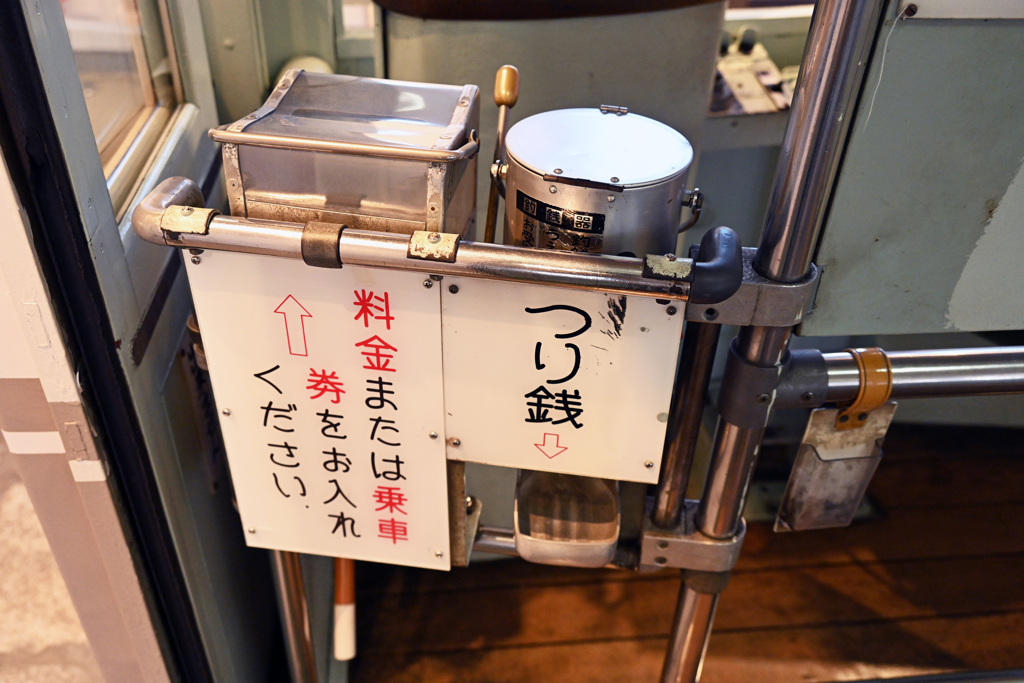 料金または乗車
券をお入れ
ください
つり銭